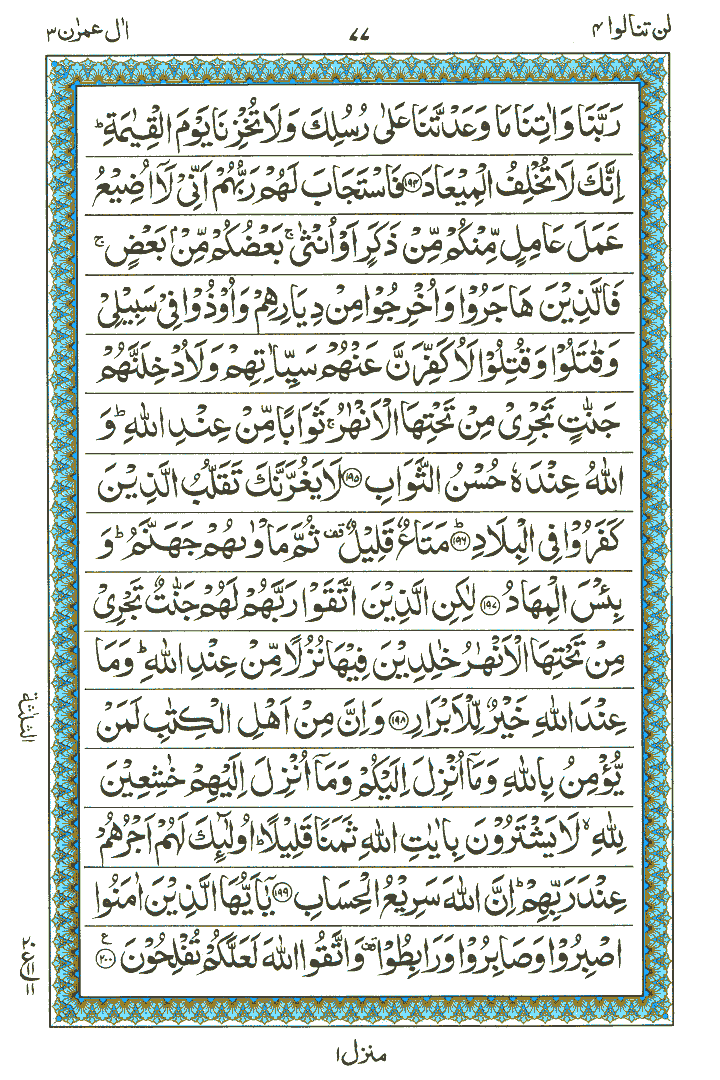 لن تنالوا ۴ ۷۷ اٰل عمرٰن ۳
رَبَّنَا وَاٰتِنَا مَا وَعَدْتَّنَا عَلٰى رُسُلِكَ وَلَا تُخْزِنَا يَوْمَ الْقِيٰمَةِ ؕ
اِنَّكَ لَا تُخْلِفُ الْمِيْعَادَ ﴿۱۹۴﴾ فَاسْتَجَابَ لَهُمْ رَبُّهُمْ اَنِّىْ لَاۤ اُضِيْعُ
عَمَلَ عَامِلٍ مِّنْكُمْ مِّنْ ذَكَرٍ اَوْ اُنْثٰى ۚ بَعْضُكُمْ مِّنْۢ بَعْضٍ ۚ
فَالَّذِيْنَ هَاجَرُوْا وَاُخْرِجُوْا مِنْ دِيَارِهِمْ وَاُوْذُوْا فِىْ سَبِيْلِىْ
وَقٰتَلُوْا وَقُتِلُوْا لَاُكَفِّرَنَّ عَنْهُمْ سَيِّاٰتِهِمْ وَلَاُدْخِلَنَّهُمْ
جَنّٰتٍ تَجْرِىْ مِنْ تَحْتِهَا الْاَنْهٰرُ ۚ ثَوَابًا مِّنْ عِنْدِ اللّٰهِ ؕ وَ
اللّٰهُ عِنْدَهٗ حُسْنُ الثَّوَابِ ﴿۱۹۵﴾ لَا يَغُرَّنَّكَ تَقَلُّبُ الَّذِيْنَ
كَفَرُوْا فِى الْبِلَادِ ؕ ﴿۱۹۶﴾ مَتَاعٌ قَلِيْلٌ قف ثُمَّ مَاْوٰىهُمْ جَهَنَّمُ ؕ وَ
بِئْسَ الْمِهَادُ ﴿۱۹۷﴾ لٰكِنِ الَّذِيْنَ اتَّقَوْا رَبَّهُمْ لَهُمْ جَنّٰتٌ تَجْرِىْ
مِنْ تَحْتِهَا الْاَنْهٰرُ خٰلِدِيْنَ فِيْهَا نُزُلًا مِّنْ عِنْدِ اللّٰهِ ؕ وَمَا
عِنْدَ اللّٰهِ خَيْرٌ لِّلْاَبْرَارِ ﴿۱۹۸﴾ وَاِنَّ مِنْ اَهْلِ الْكِتٰبِ لَمَنْ
الثلٰثة
يُّؤْمِنُ بِاللّٰهِ وَمَاۤ اُنْزِلَ اِلَيْكُمْ وَمَاۤ اُنْزِلَ اِلَيْهِمْ خٰشِعِيْنَ
لِلّٰهِ ۙ لَا يَشْتَرُوْنَ بِاٰيٰتِ اللّٰهِ ثَمَنًا قَلِيْلًا ؕ اُولٰٓئِكَ لَهُمْ اَجْرُهُمْ
عِنْدَ رَبِّهِمْ ؕ اِنَّ اللّٰهَ سَرِيْعُ الْحِسَابِ ﴿۱۹۹﴾ يٰۤاَيُّهَا الَّذِيْنَ اٰمَنُوا
اصْبِرُوْا وَصَابِرُوْا وَرَابِطُوْا قف وَاتَّقُوا اللّٰهَ لَعَلَّكُمْ تُفْلِحُوْنَ ﴿۲۰۰﴾ ع
منزل ۱